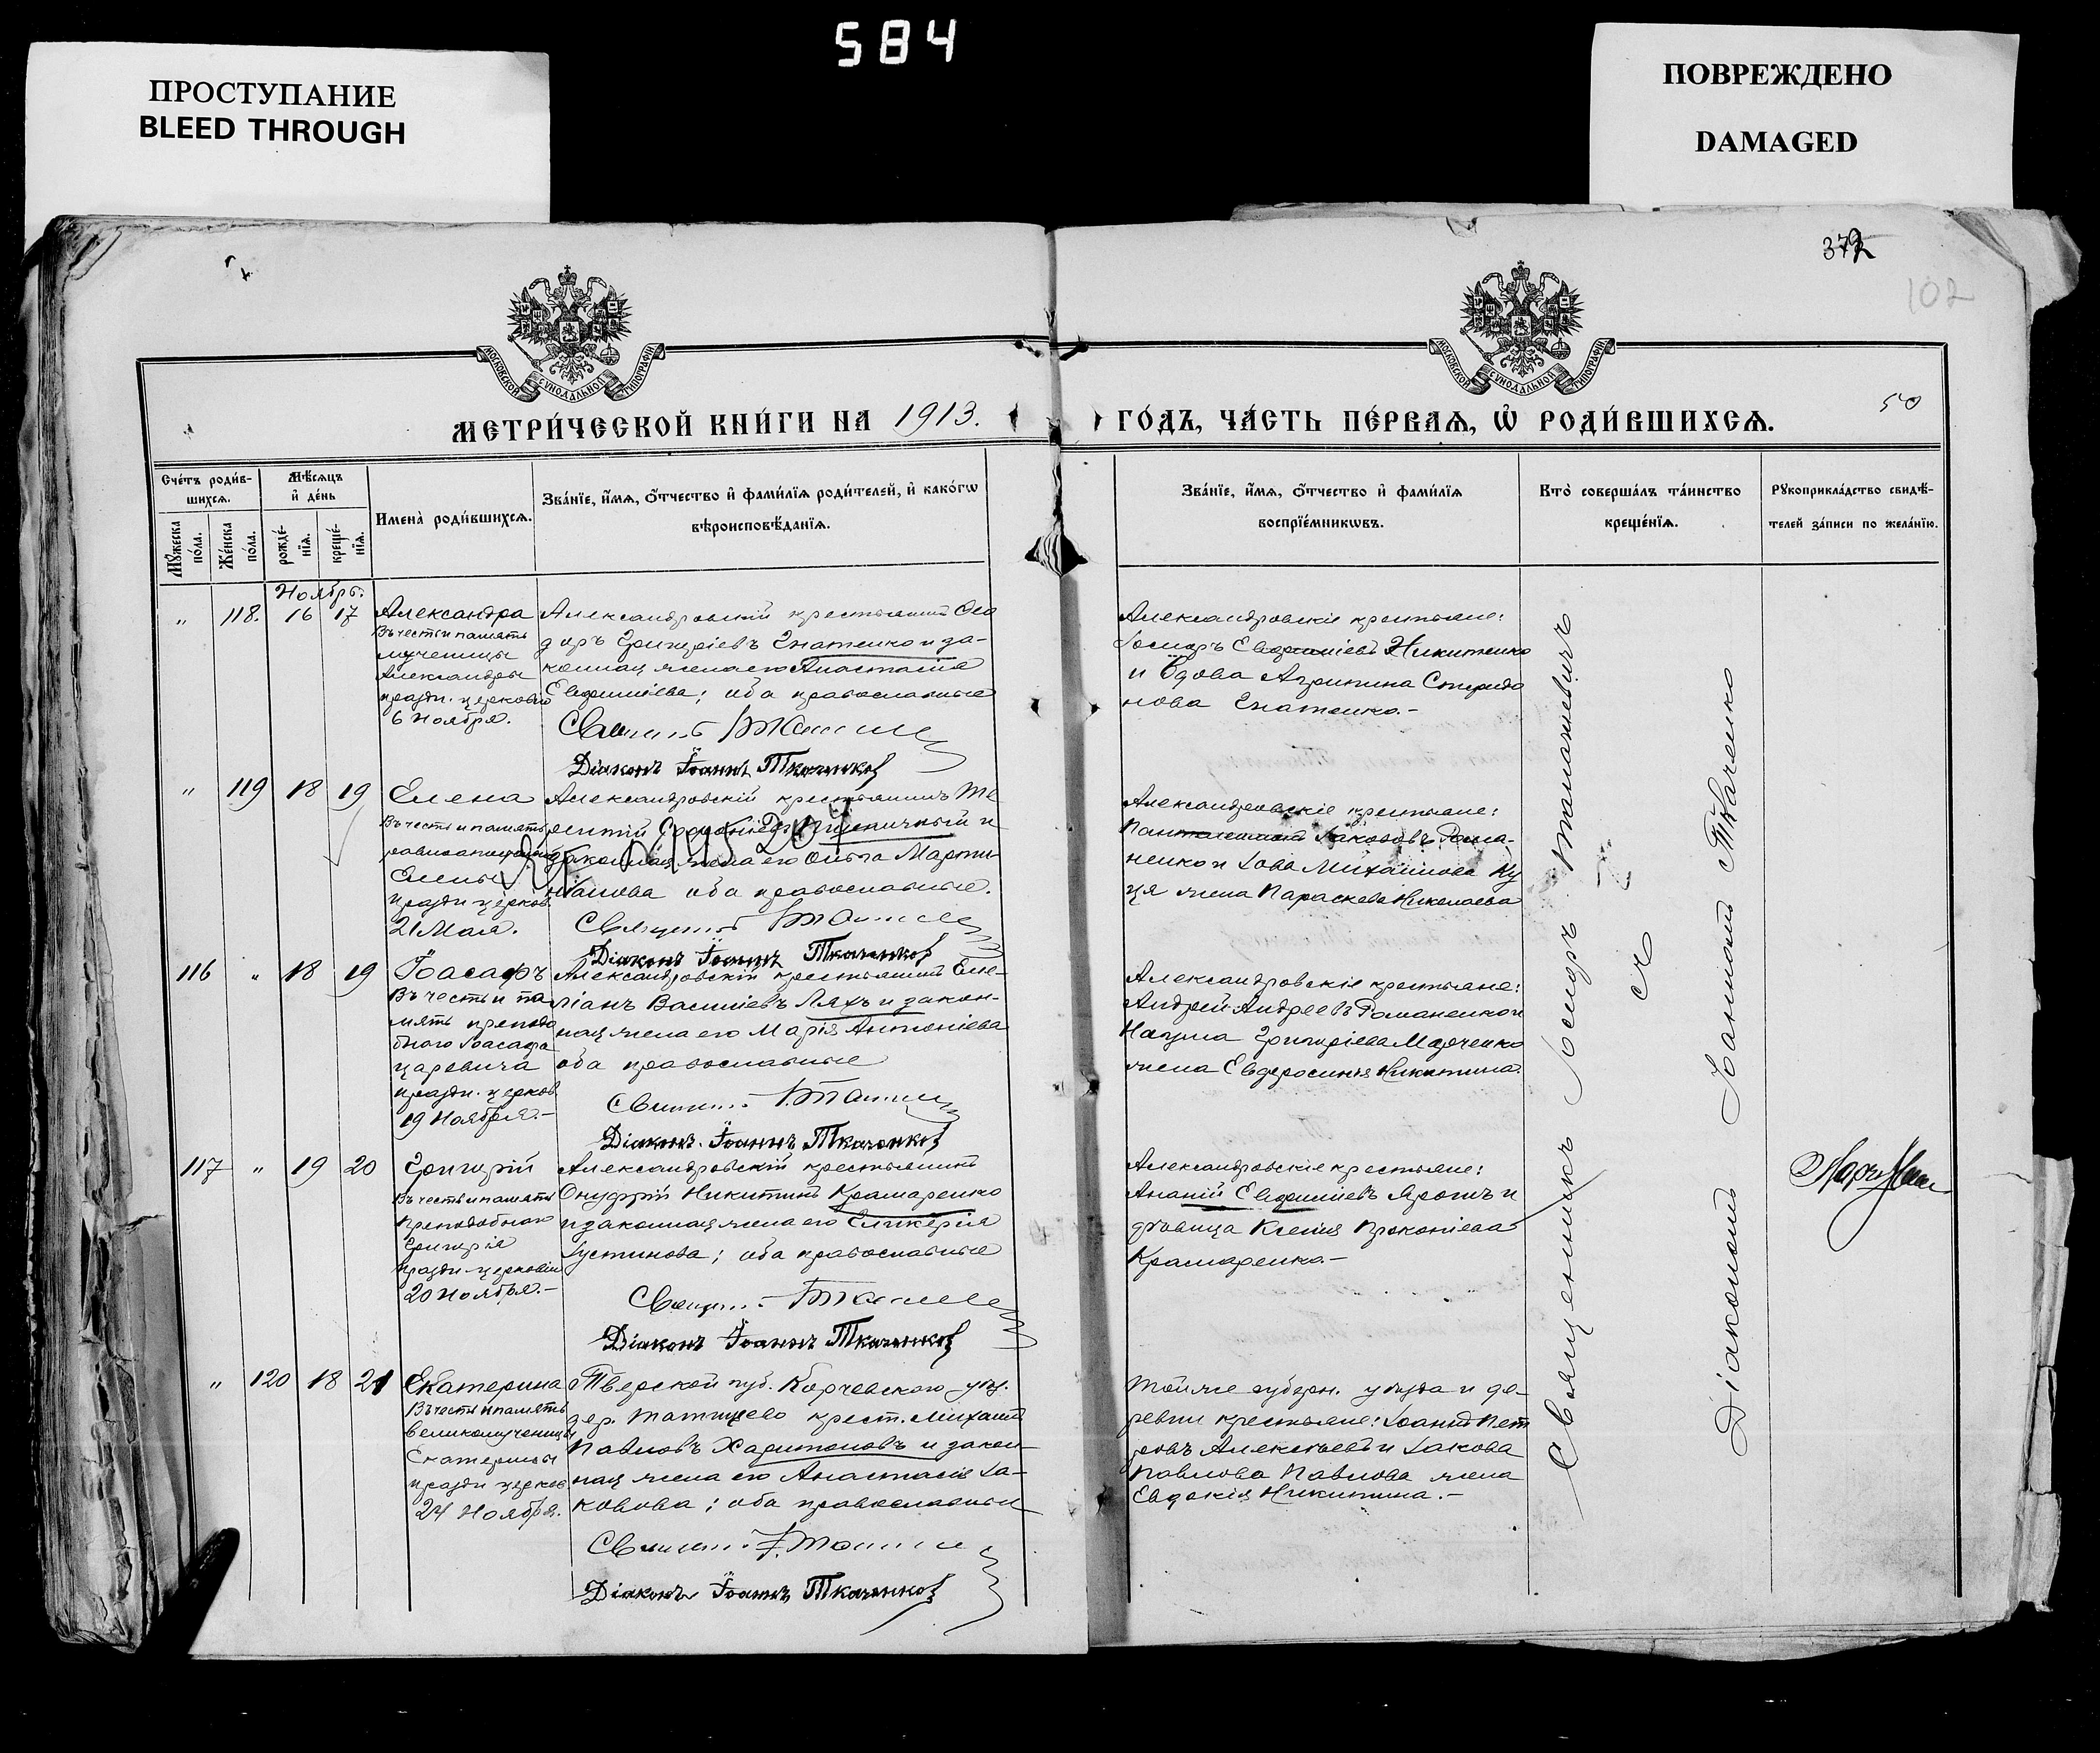 584
ПРОСТУПАНИЕ
BLEED THROUGH
ПОВРЕЖДЕНО
DAMAGED
372
102
50
МОСКОВСКОЙ СѴНОДАЛЬНОЙ ТИПОГРАФІИ
МОСКОВСКОЙ СѴНОДАЛЬНОЙ ТИПОГРАФІИ
МЕТРИ́ЧЕСКОЙ КНИ́ГИ НА 1913.
ГО́ДЪ, ЧА́СТЬ ПЕ́РВАѦ, Ѡ҆ РОДИ́ВШИХСѦ.
Сче́тъ роди́в-
шихсѧ.
Мѣ́сѧцъ
и҆ де́нь
Мꙋ́жеска
по́ла.
Же́нска
по́ла.
рожде́-
нїѧ.
креще́-
нїѧ.
Имена̀ роди́вшихсѧ.
Зва́нїе, и҆́мѧ, ѻ҆́тчество и҆ фами́лїѧ роди́телей, и҆ како́гѡ
вѣроисповѣ́данїѧ.
Зва́нїе, и҆́мѧ, ѻ҆́тчество и҆ фами́лїѧ
воспрїе́мникѡвъ.
Кто̀ соверша́лъ та́инство
креще́нїѧ.
Рꙋкоприкла́дство свидѣ́-
телей за́писи по жела́нїю.
Ноябрь.
" 118. 16 17
Александра
Въ честь и память
мученицы
Александры
праздн. церковію
6 Ноября.
Александровскій крестьянинъ Ѳео
доръ Григоріевъ Гнатенко и за-
конная жена его Анастасія
Евфиміева; оба православные
Діаконъ Іоаннъ Ткаченко
Александровскіе крестьяне:
Іосифъ Евфиміевъ Никитенко
и вдова Агрипина Спиридо
нова Гнатенко.-
" 119 18 19
Елена
Въ честь и память
равноапостольной
Елены
праздн. церков.
21 Мая.
Александровскій крестьянинъ Те
рентій Пшеничный и
законная жена его Ольга Марти-
ніанова оба православные.
Діаконъ Іоаннъ Ткаченко
Александровскіе крестьяне:
Пантелеимонъ Іаковъ Рома-
ненко и Іова Михаилова Ку
ця жена Параскева Николаева
116 " 18 19
Іоасафъ
Въ честь и па-
мять преподо
бного Іоасафа
царевича
праздн. церков.
19 Ноября.-
Александровскій крестьянинъ Еме-
ліанъ Василіевъ Ляхъ и закон-
ная жена его Марія Антоніева
оба православные
Діаконъ Іоаннъ Ткаченко
Александровскіе крестьяне:
Андрей Андреевъ Романенко и
Наума Григоріева Марченко
жена Евфросинія Никитина.
117 " 19 20
Григорій
Въ честь и память
Преподобного
Григорія
праздн. церковію
20 Ноября.-
Александровскій крестьянинъ
Онуфрій Никитинъ Крамаренко
и законная жена его Гликерія
Іустинова; оба православные
Діаконъ Іоаннъ Ткаченко
Александровскіе крестьяне:
Ананій Евфиміевъ Ярошъ и
дѣвица Ксенія Прокопіева
Крамаренко.-
" 120 18 21
Екатерина
Въ честь и память
великомученицы
Екатерины
праздн. церков.
24 Ноября.
Тверской губ. Корчевского уѣз.
дер. Татищево крест. Михаилъ
Павловъ Харитоновъ и закон-
ная жена его Анастасія Іа-
ковова; оба православные
Діаконъ Іоаннъ Ткаченко
Той же губерн. уѣзда и де-
ревни крестьяне: Іоаннъ Пет
ровъ Алексѣевъ и Іакова
Павлова Павлова жена
Евдокія Никитина.-
Священникъ Іосифъ
съ
Діакономъ Іоанномъ Ткаченко